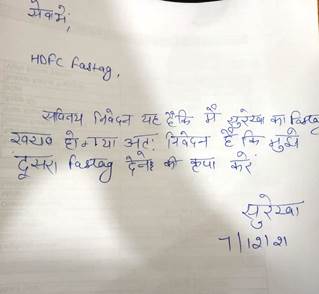 सेवामें,
HDFC Fastag,
सविनय निवेदन यह है कि मैं सुरेखा का Fastag
खराब हो गया अतः निवेदन है कि मुझे
दूसरा Fastag देने की कृपा करें
सुरेखा
7/12/21